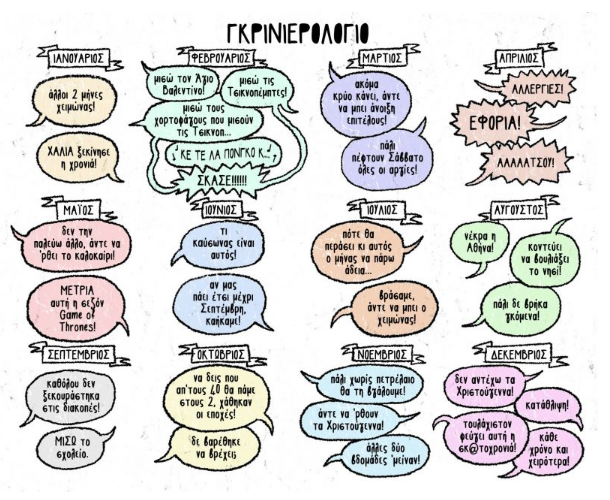 ΓΚΡΙΝΙΕΡΟΛΟΓΙΟ
ΙΑΝΟΥΑΡΙΟΣ
άλλοι 2 μήνες
χειμώνας!
ΧΑΛΙΑ ξεκίνησε
η χρονιά!
ΦΕΒΡΟΥΑΡΙΟΣ
μισώ τον Άγιο
Βαλεντίνο!
μισώ τις
Τσικνοπέμπτες!
μισώ τους
χορτοφάγους που μισούν
τις Τσικνοπ...
'ΚΕ ΤΕ ΛΑ ΠΟΝΓΚΟ Κ...'
ΣΚΑΣΕ!!!!!!
ΜΑΡΤΙΟΣ
ακόμα
κρύο κάνει, άντε
να μπει άνοιξη
επιτέλους!
πάλι
πέφτουν Σάββατο
όλες οι αργίες!
ΑΠΡΙΛΙΟΣ
ΑΛΛΕΡΓΙΕΣ!
ΕΦΟΡΙΑ!
ΑΛΛΑΑΤΣΟΥ!
ΜΑΪΟΣ
δεν την
παλεύω άλλο, άντε να
'ρθει το καλοκαίρι!
ΜΕΤΡΙΑ
αυτή η σεζόν
Game of
Thrones!
ΙΟΥΝΙΟΣ
τι
καύσωνας είναι
αυτός!
αν μας
πάει έτσι μέχρι
Σεπτέμβρη,
καήκαμε!
ΙΟΥΛΙΟΣ
πότε θα
περάσει κι αυτός
ο μήνας να πάρω
άδεια...
βράσαμε,
άντε να μπει ο
χειμώνας!
ΑΥΓΟΥΣΤΟΣ
νέκρα η
Αθήνα!
κοντεύει
να βουλιάξει
το νησί!
πάλι δε βρήκα
γκόμενα!
ΣΕΠΤΕΜΒΡΙΟΣ
καθόλου δεν
ξεκουράστηκα
στις διακοπές!
ΜΙΣΩ το
σχολείο.
ΟΚΤΩΒΡΙΟΣ
να δεις που
απ'τους 40 θα πάμε
στους 2, χάθηκαν
οι εποχές!
δε βαρέθηκε
να βρέχει;
ΝΟΕΜΒΡΙΟΣ
πάλι χωρίς πετρέλαιο
θα τη βγάλουμε!
άντε να 'ρθουν
τα Χριστούγεννα!
άλλες δύο
βδομάδες 'μείναν!
ΔΕΚΕΜΒΡΙΟΣ
δεν αντέχω τα
Χριστούγεννα!
κατάθλιψη!
τουλάχιστον
φεύγει αυτή η
σκ@τοχρονιά!
κάθε
χρόνο και
χειρότερα!